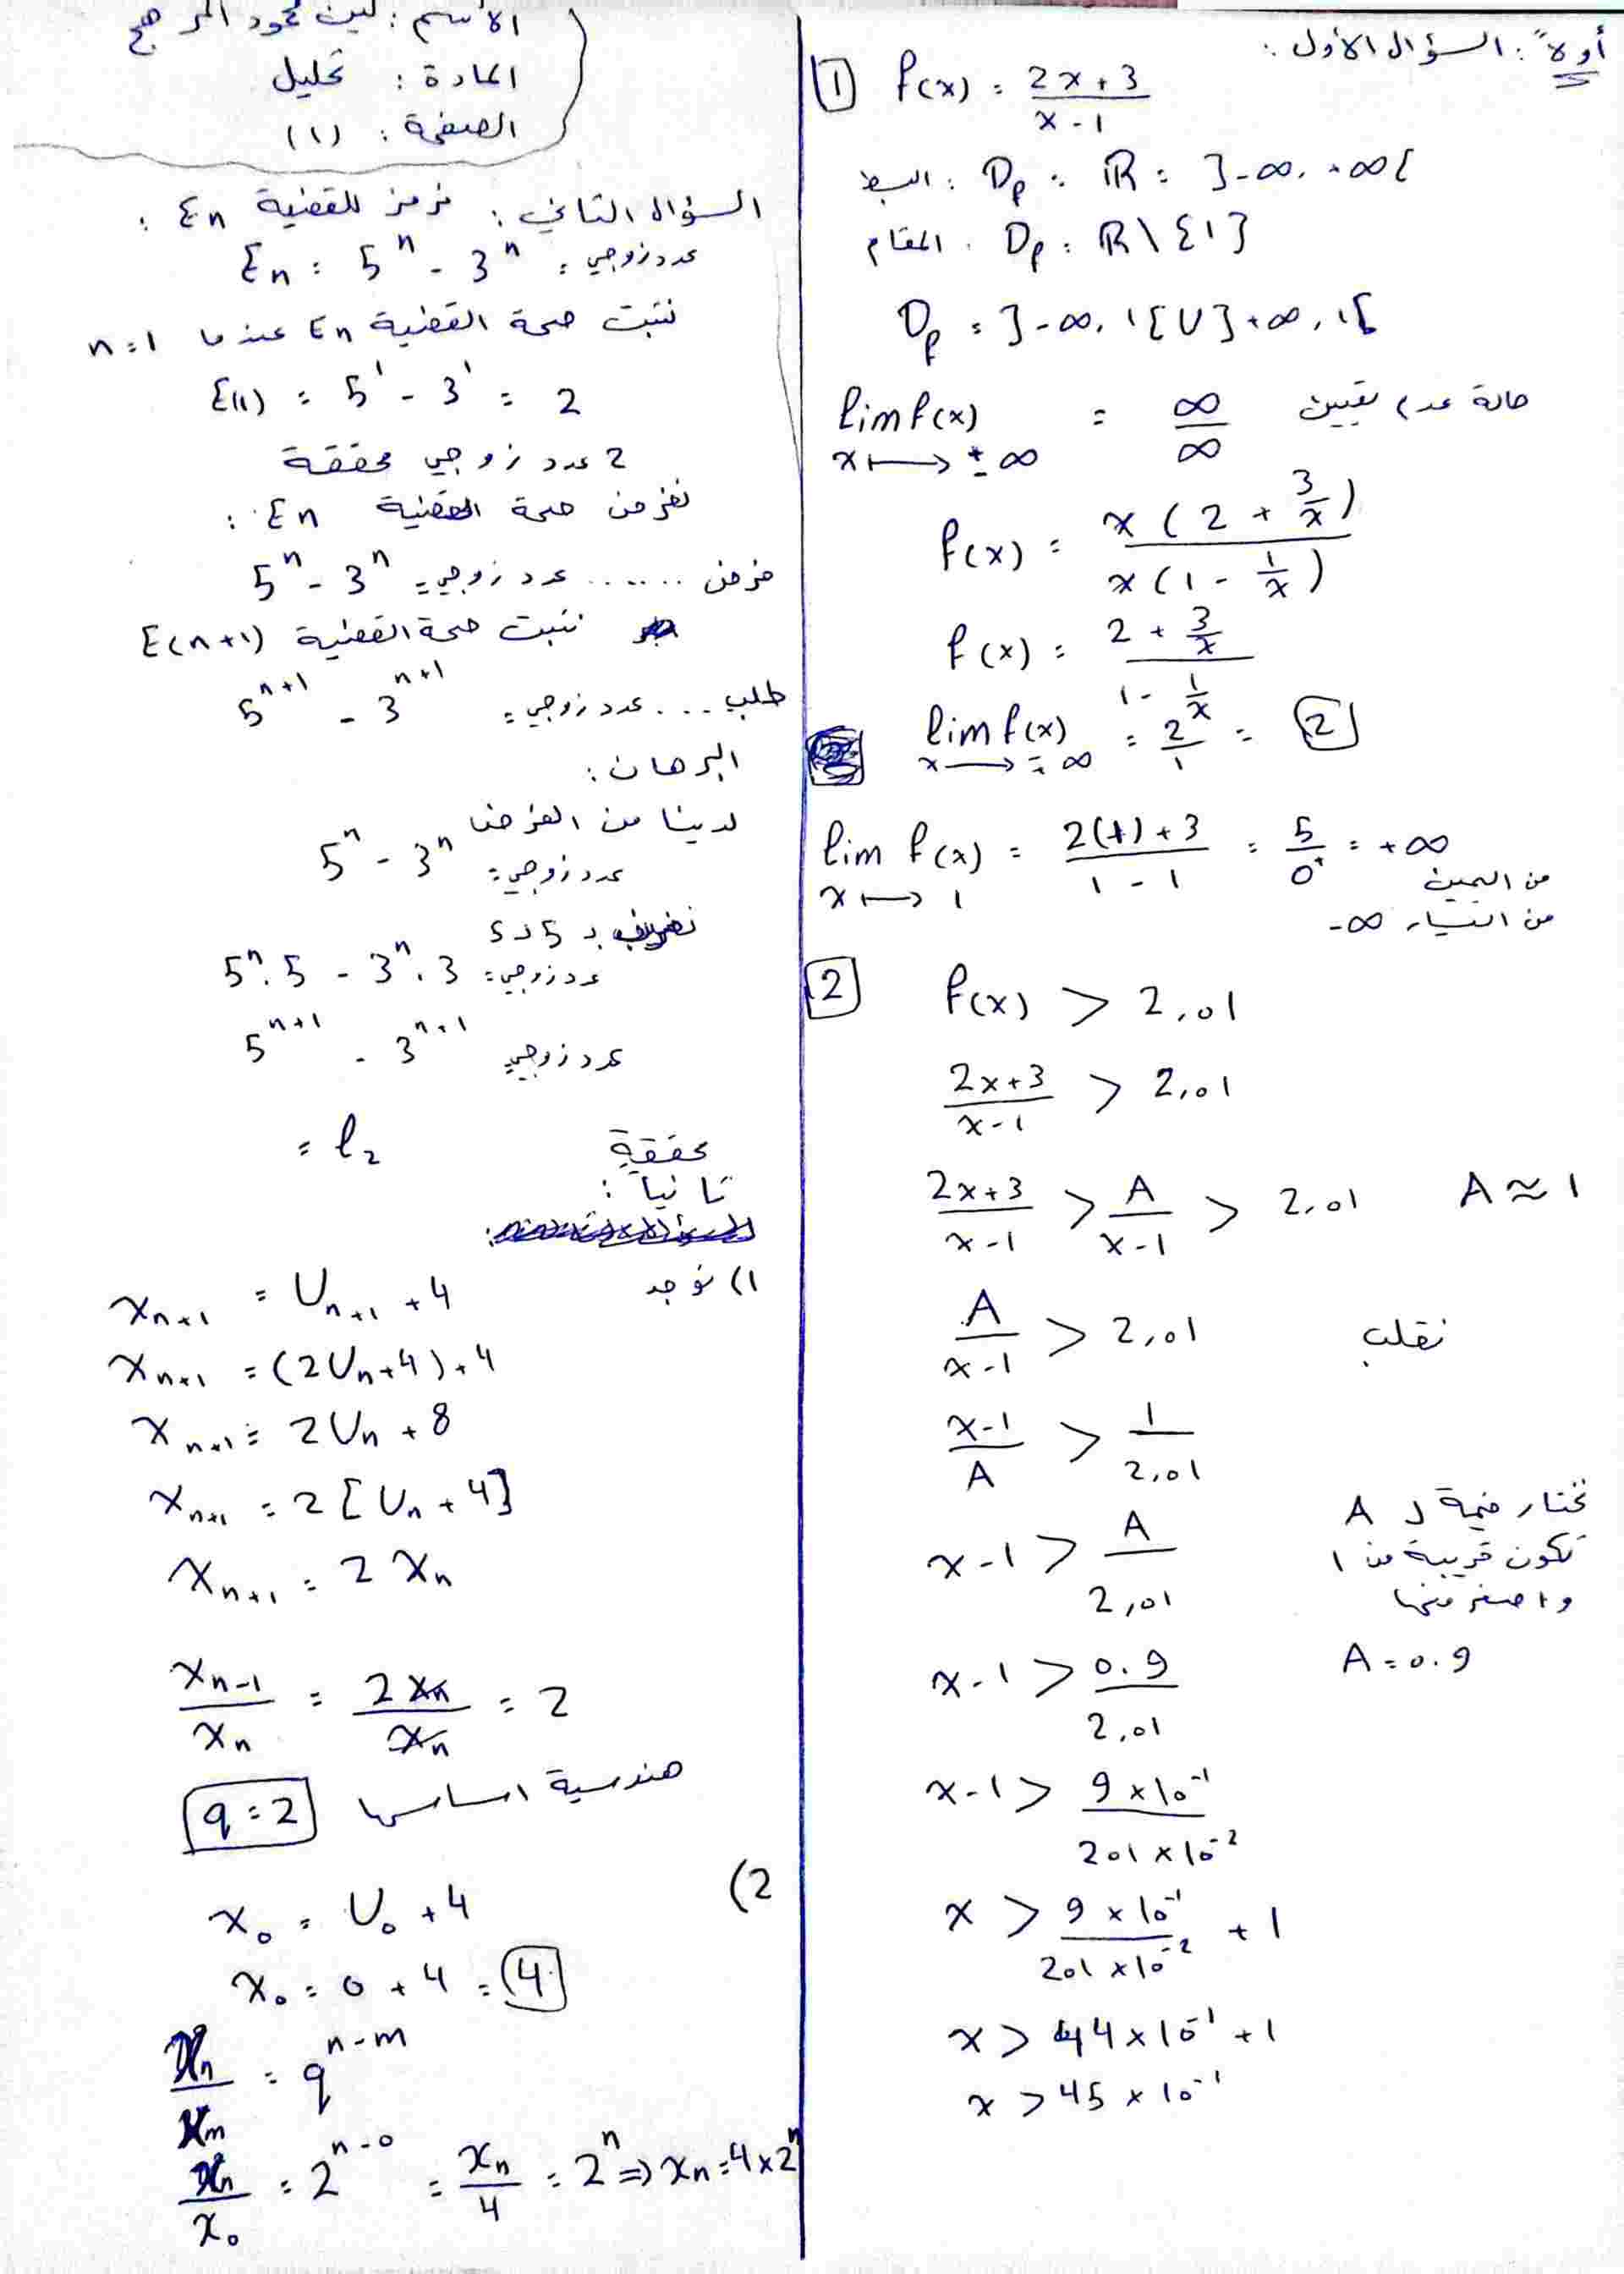 أولاً: السؤال الأول:
1 f(x) = \frac{2x+3}{x-1}
البسط: D_f = R = ]-∞, +∞[
المقام: D_f = R \ {1}
D_f = ]-∞, 1[ U ]+∞, 1[
lim f(x) x→±∞ = \frac{∞}{∞} حالة عدم تعيين
f(x) = \frac{x(2+\frac{3}{x})}{x(1-\frac{1}{x})}
f(x) = \frac{2+\frac{3}{x}}{1-\frac{1}{x}}
lim f(x) x→±∞ = \frac{2}{1} = 2
lim f(x) x→1 = \frac{2(1)+3}{1-1} = \frac{5}{0^+} = +∞
من اليمين
من اليسار -∞
2 f(x) > 2,01
\frac{2x+3}{x-1} > 2,01
\frac{2x+3}{x-1} > \frac{A}{x-1} > 2,01 A ≈ 1
\frac{A}{x-1} > 2,01 نقلب
\frac{x-1}{A} > \frac{1}{2,01}
x-1 > \frac{A}{2,01}
نختار قيمة ل A
تكون قريبة من 1
واصغر منها
x-1 > \frac{0.9}{2,01} A = 0.9
x-1 > \frac{9×10^{-1}}{201×10^{-2}}
x > \frac{9×10^{-1}}{201×10^{-2}} + 1
x > 44×10^{-1} + 1
x > 45×10^{-1}
الأسم: ليث محمود
المادة: تحليل
الصفحة: (1)
السؤال الثاني: نرمز للقضية En:
En: 5^n - 3^n عدد زوجي
نثبت صحة القضية En عندما n=1
E(1) = 5^1 - 3^1 = 2
2 عدد زوجي محققة
نفرض صحة القضية En:
فرض ...... عدد زوجي = 5^n - 3^n
نثبت صحة القضية E(n+1)
طلب ... عدد زوجي = 5^{n+1} - 3^{n+1}
البرهان:
لدينا من الفرض
5^n - 3^n عدد زوجي =
نضرب ب 5 و
5^n.5 - 3^n.3 عدد زوجي =
5^{n+1} - 3^{n+1} عدد زوجي
= l_2 محققة
ثانياً:
1) نوجد
x_{n+1} = U_{n+1} + 4
x_{n+1} = (2U_n+4)+4
x_{n+1} = 2U_n + 8
x_{n+1} = 2[U_n + 4]
x_{n+1} = 2x_n
\frac{x_{n-1}}{x_n} = \frac{2x_n}{x_n} = 2
هندسية اساسها q=2
2)
x_0 = U_0 + 4
x_0 = 0 + 4 = 4
\frac{x_n}{x_m} = q^{n-m}
\frac{x_n}{x_0} = 2^{n-0} = \frac{x_n}{4} = 2^n ⇒ x_n = 4×2^n